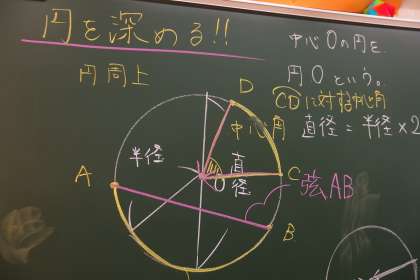 円を深める!!
中心Oの円を、
円Oという。
円周上
D
CDに対する中心角
中心角
直径=半径×2
半径
直径
A
O
C
弦AB
B